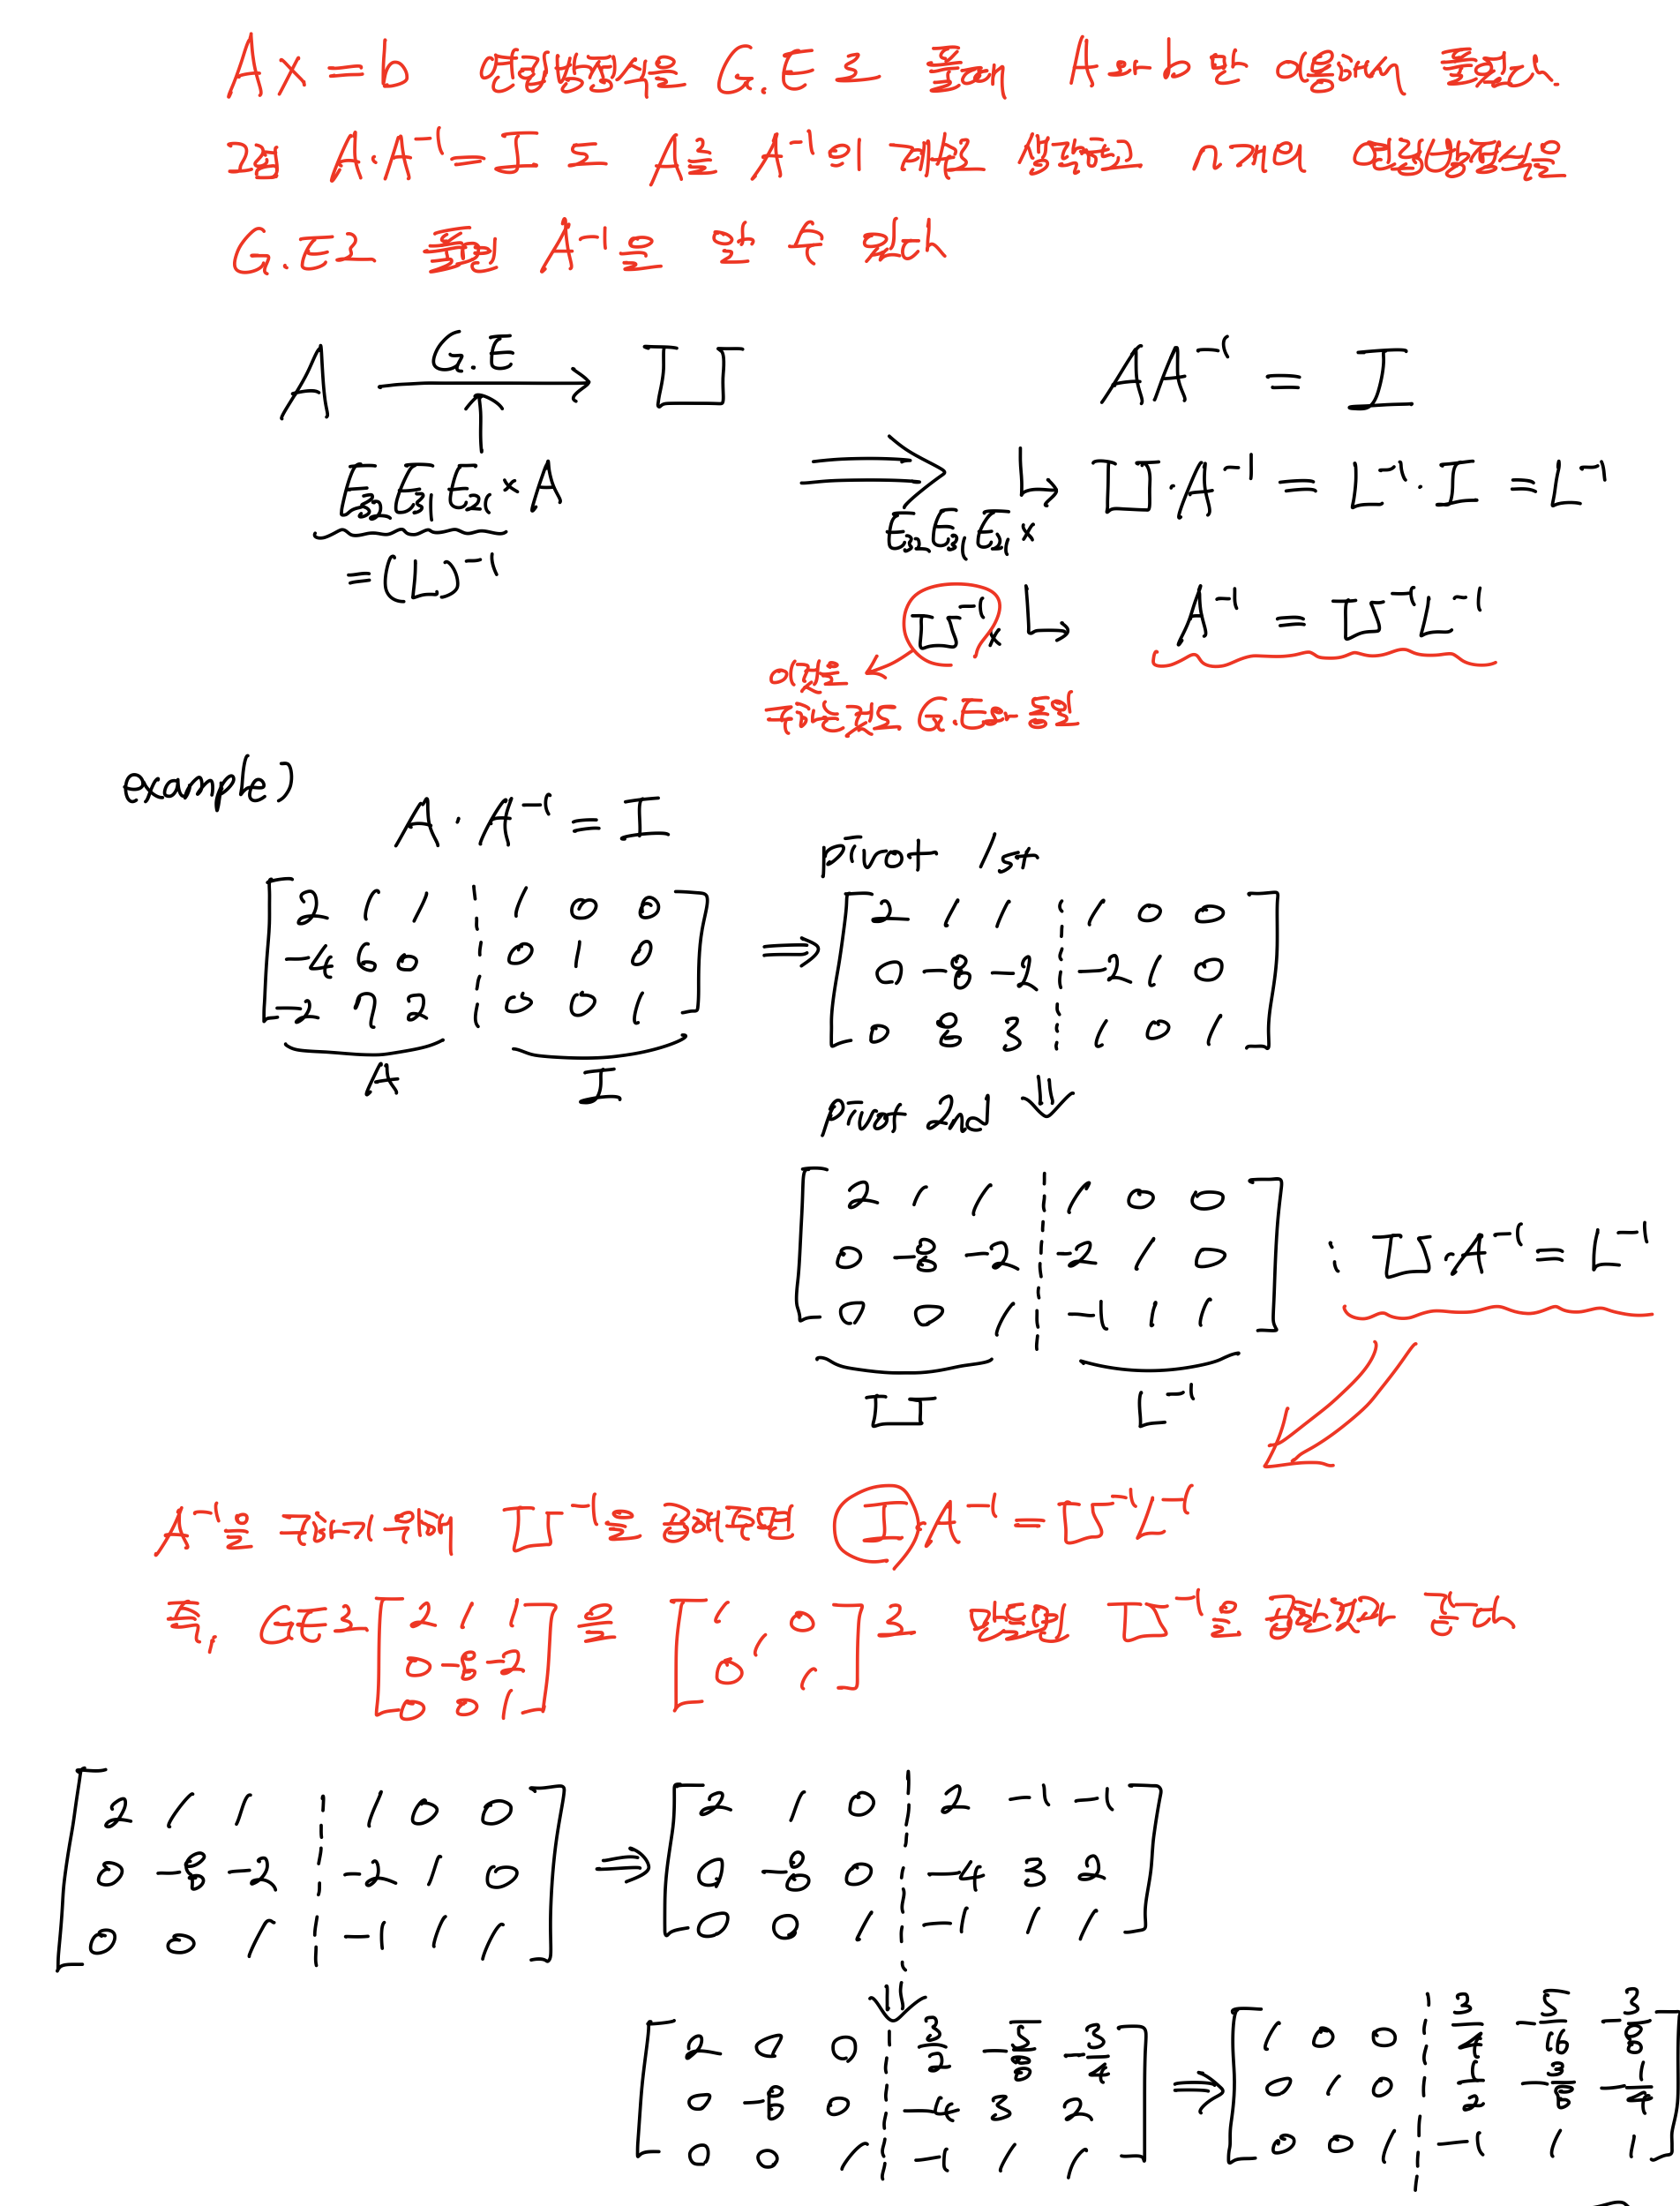 Ax=b 연립방정식을 G.E로 풀때 A와 b만 이용해서 풀었다.
그럼 A·A⁻¹=I 도 A를 A⁻¹의 계수로 생각하고 n개의 연립방정식을
G.E로 풀면 A⁻¹을 알 수 있다
A G.E→ U
E₃₂E₃₁E₂₁×A
=(L)⁻¹
⇒
AA⁻¹ = I
E₃₂E₃₁E₂₁× ↳ U·A⁻¹ = L⁻¹·I = L⁻¹
U⁻¹× ↳ A⁻¹ = U⁻¹L⁻¹
이것을
구하는것도 G.E와 동일
example)
A·A⁻¹=I
[2 1 1 ¦ 1 0 0
-4 6 0 ¦ 0 1 0
-2 7 2 ¦ 0 0 1]
A I
⇒ pivot 1st
[2 1 1 ¦ 1 0 0
0 -8 -2 ¦ -2 1 0
0 8 3 ¦ 1 0 1]
pivot 2nd ⇓
[2 1 1 ¦ 1 0 0
0 -8 -2 ¦ -2 1 0
0 0 1 ¦ -1 1 1]
U L⁻¹
: U·A⁻¹=L⁻¹
A⁻¹을 구하기 위해 U⁻¹을 곱해주면 I·A⁻¹=U⁻¹L⁻¹
즉, G.E로 [2 1 1 을 [1 0 로 만들면 U⁻¹을 곱한것과 같다
0 -8 -2 1
0 0 1] 0 1]
[2 1 1 ¦ 1 0 0
0 -8 -2 ¦ -2 1 0
0 0 1 ¦ -1 1 1]
⇒ [2 1 0 ¦ 2 -1 -1
0 -8 0 ¦ -4 3 2
0 0 1 ¦ -1 1 1]
⇓
[2 0 0 ¦ 3/2 -5/8 -3/4
0 -8 0 ¦ -4 3 2
0 0 1 ¦ -1 1 1]
⇒ [1 0 0 ¦ 3/4 -5/16 -3/8
0 1 0 ¦ 1/2 -3/8 -1/4
0 0 1 ¦ -1 1 1]